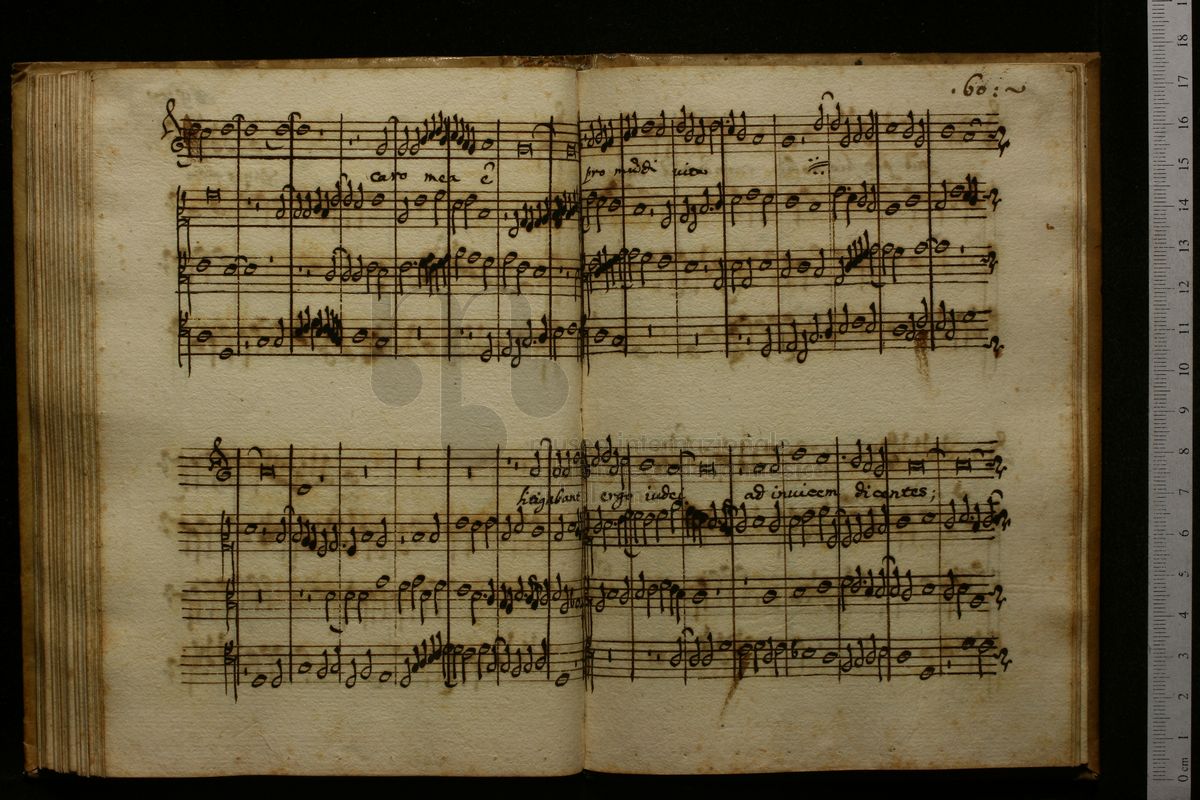 .60:~
caro mea ē pro mūdi uita
litigabant ergo iudei ad inuicem dicentes;
museo internazionale
0 cm 1 2 3 4 5 6 7 8 9 10 11 12 13 14 15 16 17 18